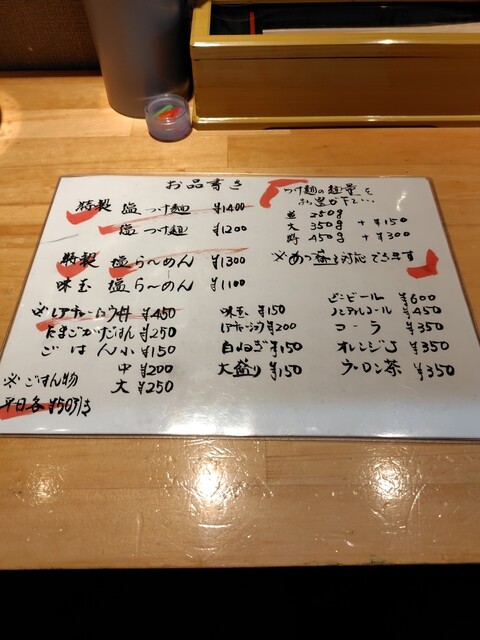 お品書き
特製 塩つけ麺 ¥1400
塩つけ麺 ¥1200
特製 塩らーめん ¥1300
味玉 塩らーめん ¥1100
※レアチャーシュウ丼 ¥450
たまごかけごはん ¥250
ごはん 小 ¥150
中 ¥200
大 ¥250
※ごはん物
平日各¥50引き
つけ麺の麺量を
お選び下さい…
並 250g
大 350g +¥150
特 450g +¥300
※あつ盛り対応できます
味玉 ¥150
レアチャーシュウ ¥200
白ねぎ ¥150
大盛り ¥150
ビンビール ¥600
ノンアルコール ¥450
コーラ ¥350
オレンジJ ¥350
ウーロン茶 ¥350